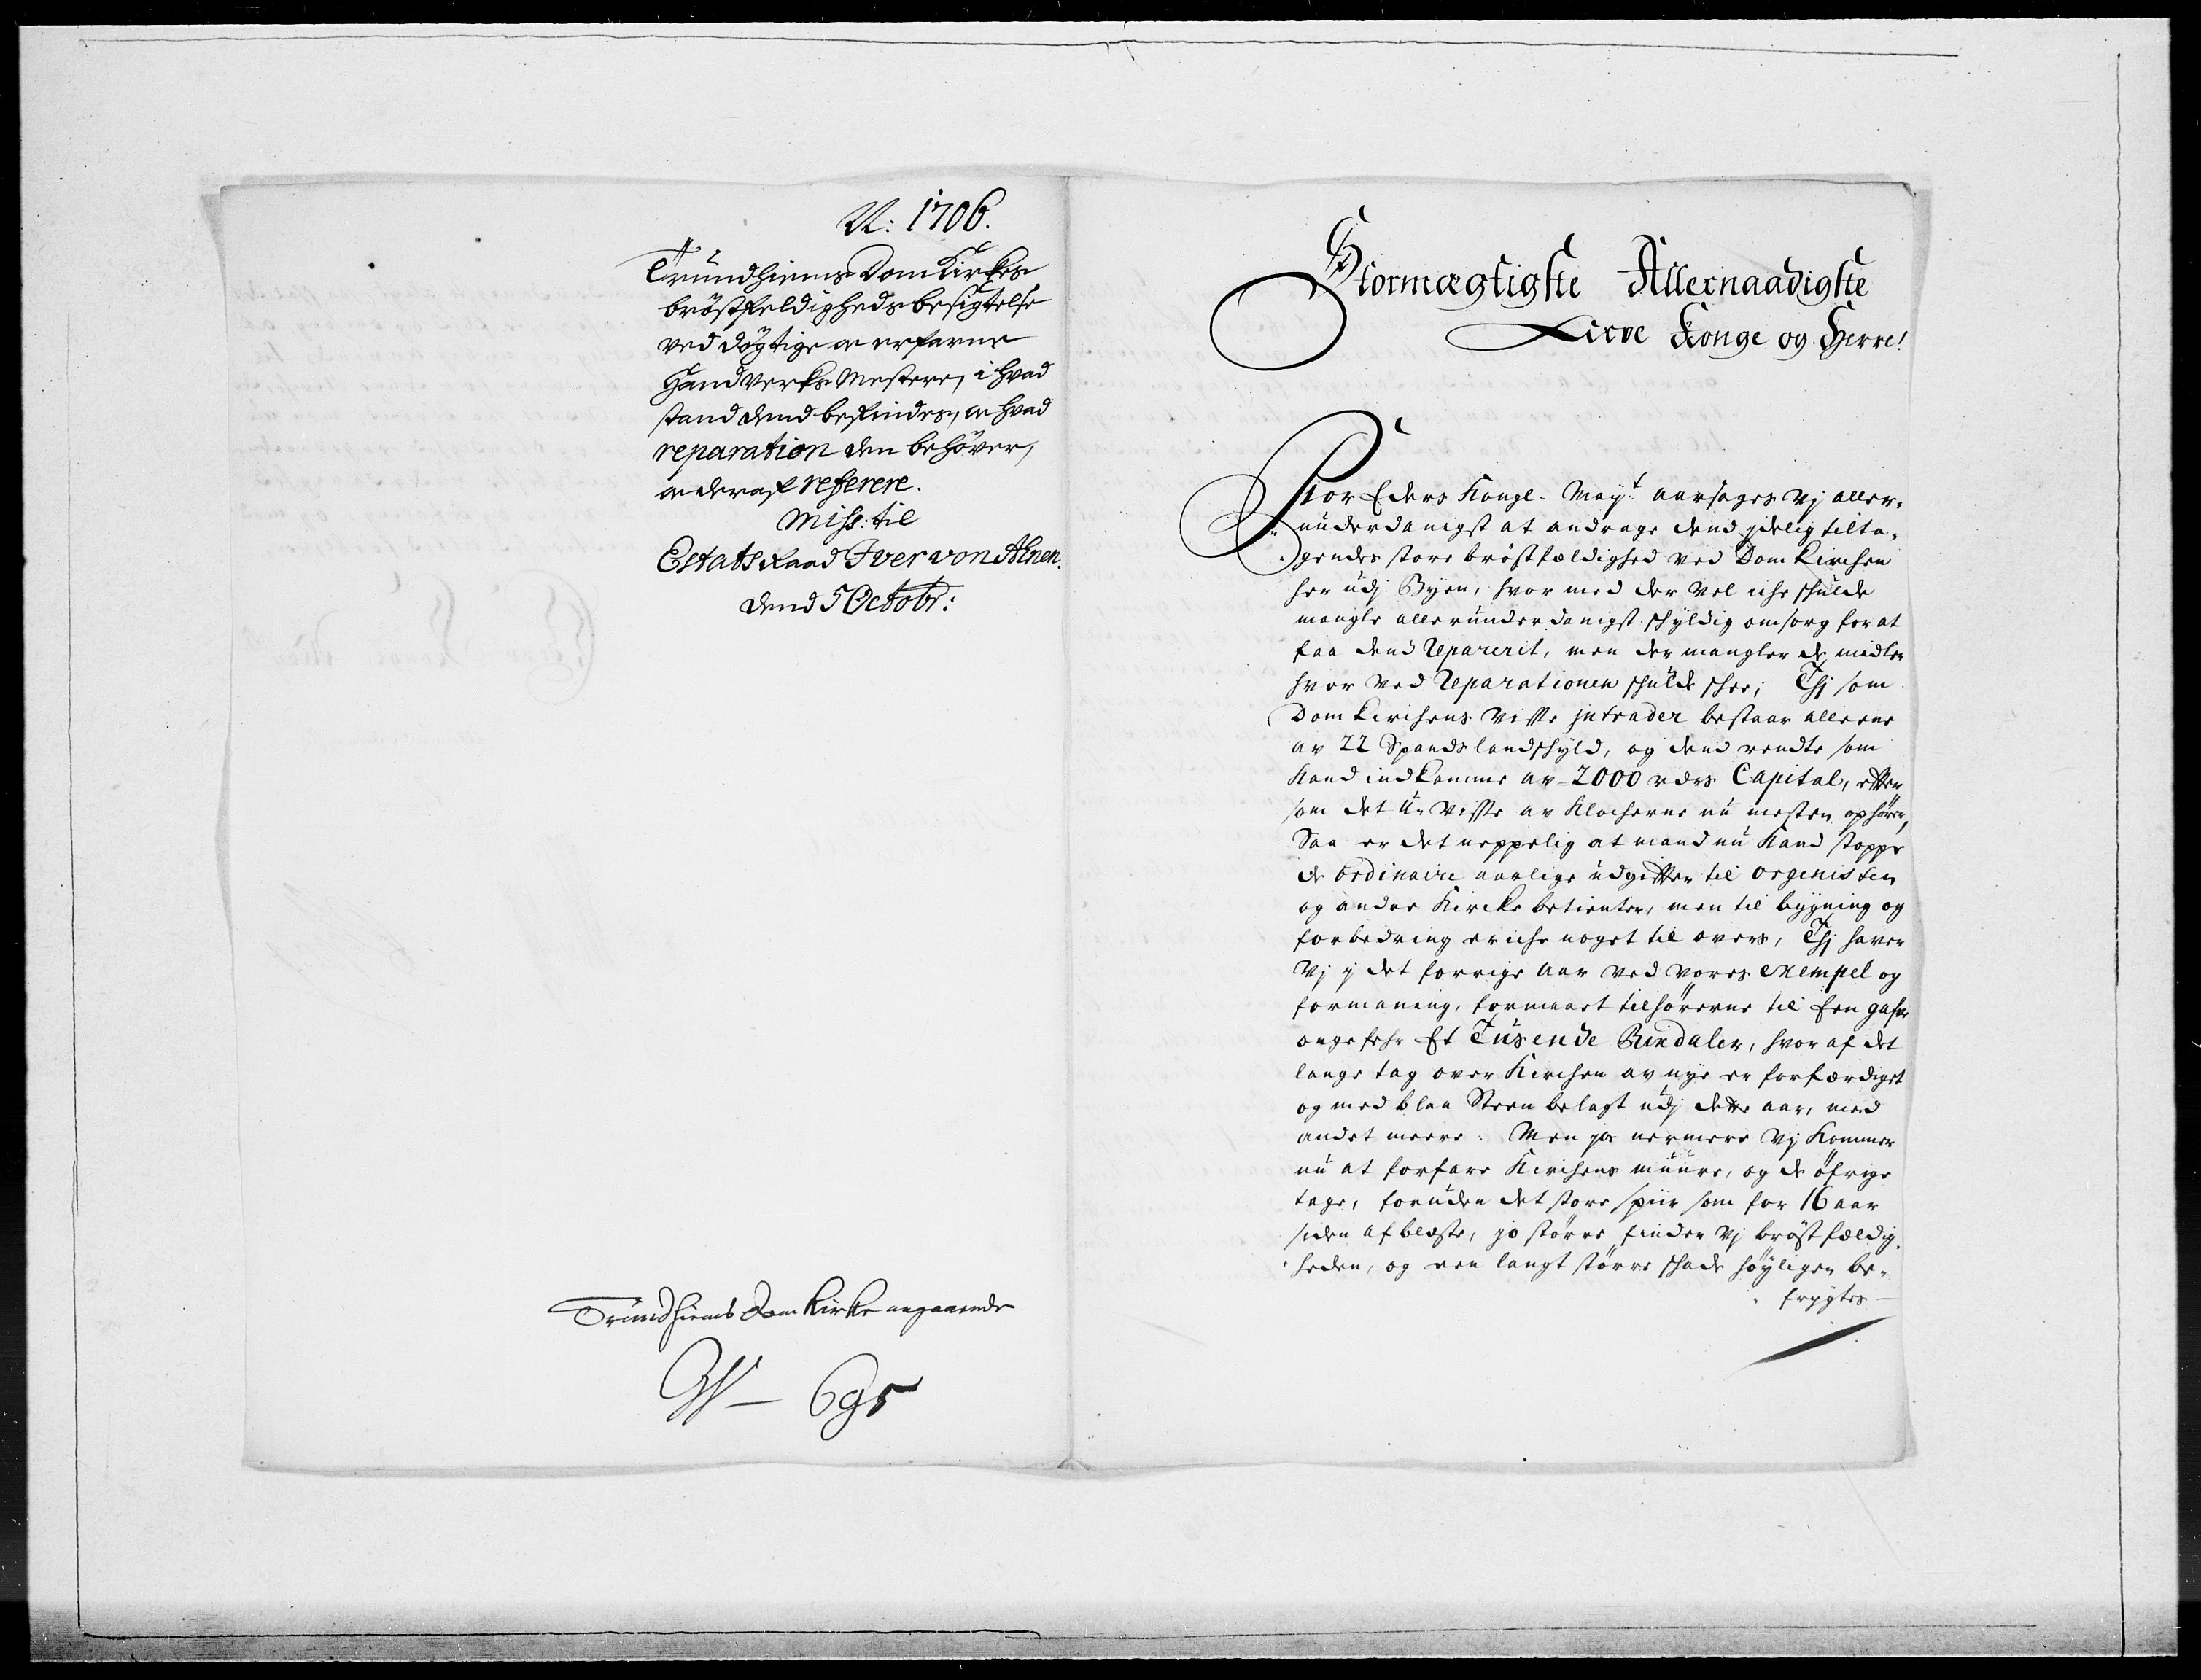 N: 1706.
Trundhiems Dom Kirkes
bröstfeldigheds besigtelse
ved dögtige oc erfarne
Handverks Mestere, i hvad
stand dend befindes, oc hvad
reparation den behöver,
oc deraf referere.
Miss: til
Estats Raad Iver von Ahnen.
dend 5 Octobr:
Trundhiems Dom Kirke angaaende
695
Stormægtigste Allernaadigste
Arve Konge og Herre!
For Eders Kongl. Mayt: aarsages Vj aller-
underdanigst at andrage dend ydelig tilta-
gendes store bröstfældighed ved Dom Kirchen
her udj Byen, hvor med der vel iche schulde
mangle allerunderdanigst schyldig omsorg for at
faa dend Reparerit, men der mangler de midler
hvor ved Reparationen schulde schee; Thj som
Dom Kirchens visse jntrader bestaar alleene
av 22 Spands landschyld, og dend rendte som
Kand indkomme av 2000 rdrs Capital, efter
som det u-visse av Klocherne nu mesten ophörer,
Saa er det neppelig at mand nu Kand stoppe
de ordinaire aarlige udgifter til orgenisten
og andre Kircke betienter, men til bygning og
forbedring er iche noget til overs, Thj haver
Vj j det forrige aar ved vores exempel og
formaning, formaaet tilhörerne til Een gafve
ongefehr Et Tusende Rixdaler, hvor af det
lange tag over Kirchen av nye er forfærdiget
og med blaa Steen belagt udj dette aar, med
andet meere. Men jo nermere Vj Kommer
nu at forfare Kirchens muure, og de öfrige
tage, foruden det store spiir som for 16 aar
siden afbleste, jo större finder Vj bröstfældig-
heden, og een langt större schade höyligen be-
frygtes